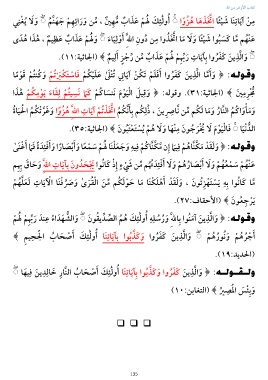 كتاب الأزمن من الله
مِنْ آيَاتِنَا شَيْئًا اتَّخَذَهَا هُزُوًا ۚ أُولَٰئِكَ لَهُمْ عَذَابٌ مُّهِينٌ ، مِّن وَرَائِهِمْ جَهَنَّمُ ۖ وَلَا يُغْنِي
عَنْهُم مَّا كَسَبُوا شَيْئًا وَلَا مَا اتَّخَذُوا مِن دُونِ اللَّهِ أَوْلِيَاءَ ۖ وَلَهُمْ عَذَابٌ عَظِيمٌ ، هَٰذَا هُدًى
ۖ وَالَّذِينَ كَفَرُوا بِآيَاتِ رَبِّهِمْ لَهُمْ عَذَابٌ مِّن رِّجْزٍ أَلِيمٌ ﴾ (الجاثية:١١).
وقوله: ﴿ وَأَمَّا الَّذِينَ كَفَرُوا أَفَلَمْ تَكُنْ آيَاتِي تُتْلَىٰ عَلَيْكُمْ فَاسْتَكْبَرْتُمْ وَكُنتُمْ قَوْمًا
مُّجْرِمِينَ ﴾ (الجاثية:31). وقوله: ﴿ وَقِيلَ الْيَوْمَ نَنسَاكُمْ كَمَا نَسِيتُمْ لِقَاءَ يَوْمِكُمْ هَٰذَا
وَمَأْوَاكُمُ النَّارُ وَمَا لَكُم مِّن نَّاصِرِينَ ، ذَٰلِكُم بِأَنَّكُمُ اتَّخَذْتُمْ آيَاتِ اللَّهِ هُزُوًا وَغَرَّتْكُمُ الْحَيَاةُ
الدُّنْيَا ۚ فَالْيَوْمَ لَا يُخْرَجُونَ مِنْهَا وَلَا هُمْ يُسْتَعْتَبُونَ ﴾ (الجاثية:٣٥).
وقوله: ﴿ وَلَقَدْ مَكَّنَّاهُمْ فِيمَا إِن مَّكَّنَّاكُمْ فِيهِ وَجَعَلْنَا لَهُمْ سَمْعًا وَأَبْصَارًا وَأَفْئِدَةً فَمَا أَغْنَىٰ
عَنْهُمْ سَمْعُهُمْ وَلَا أَبْصَارُهُمْ وَلَا أَفْئِدَتُهُم مِّن شَيْءٍ إِذْ كَانُوا يَجْحَدُونَ بِآيَاتِ اللَّهِ وَحَاقَ بِهِم
مَّا كَانُوا بِهِ يَسْتَهْزِئُونَ ، وَلَقَدْ أَهْلَكْنَا مَا حَوْلَكُم مِّنَ الْقُرَىٰ وَصَرَّفْنَا الْآيَاتِ لَعَلَّهُمْ
يَرْجِعُونَ ﴾ (الأحقاف:٢٧).
وقوله: ﴿ وَالَّذِينَ آمَنُوا بِاللَّهِ وَرُسُلِهِ أُولَٰئِكَ هُمُ الصِّدِّيقُونَ ۖ وَالشُّهَدَاءُ عِندَ رَبِّهِمْ لَهُمْ
أَجْرُهُمْ وَنُورُهُمْ ۖ وَالَّذِينَ كَفَرُوا وَكَذَّبُوا بِآيَاتِنَا أُولَٰئِكَ أَصْحَابُ الْجَحِيمِ ﴾
(الحديد:١٩).
ولـقـولـه: ﴿ وَالَّذِينَ كَفَرُوا وَكَذَّبُوا بِآيَاتِنَا أُولَٰئِكَ أَصْحَابُ النَّارِ خَالِدِينَ فِيهَا ۖ
وَبِئْسَ الْمَصِيرُ ﴾ (التغابن:١٠)
135